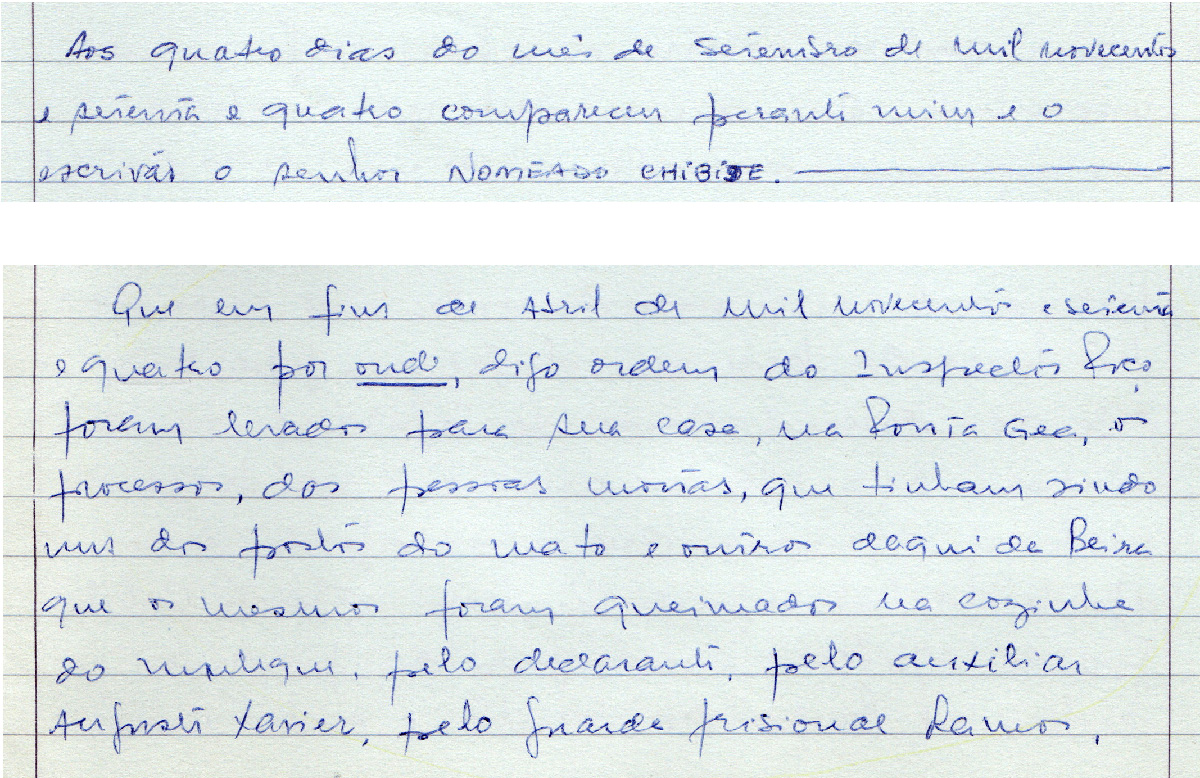 Aos quatro dias do mês de Setembro de mil novecentos
e setenta e quatro compareceu perante mim e o
escrivão o senhor NOMEADO CHIBISE.
Que em fins de Abril de mil novecentos e setenta
e quatro por onde, digo ordem do Inspector
foram levados para sua casa, na Ponta Gea, os
processos, das pessoas mortas, que tinham vindo
uns dos postos do mato e outros daqui da Beira
que os mesmos foram queimados na cozinha
do, pelo declarante, pelo auxiliar
Augusto Xavier, pelo guarda prisional Ramos,